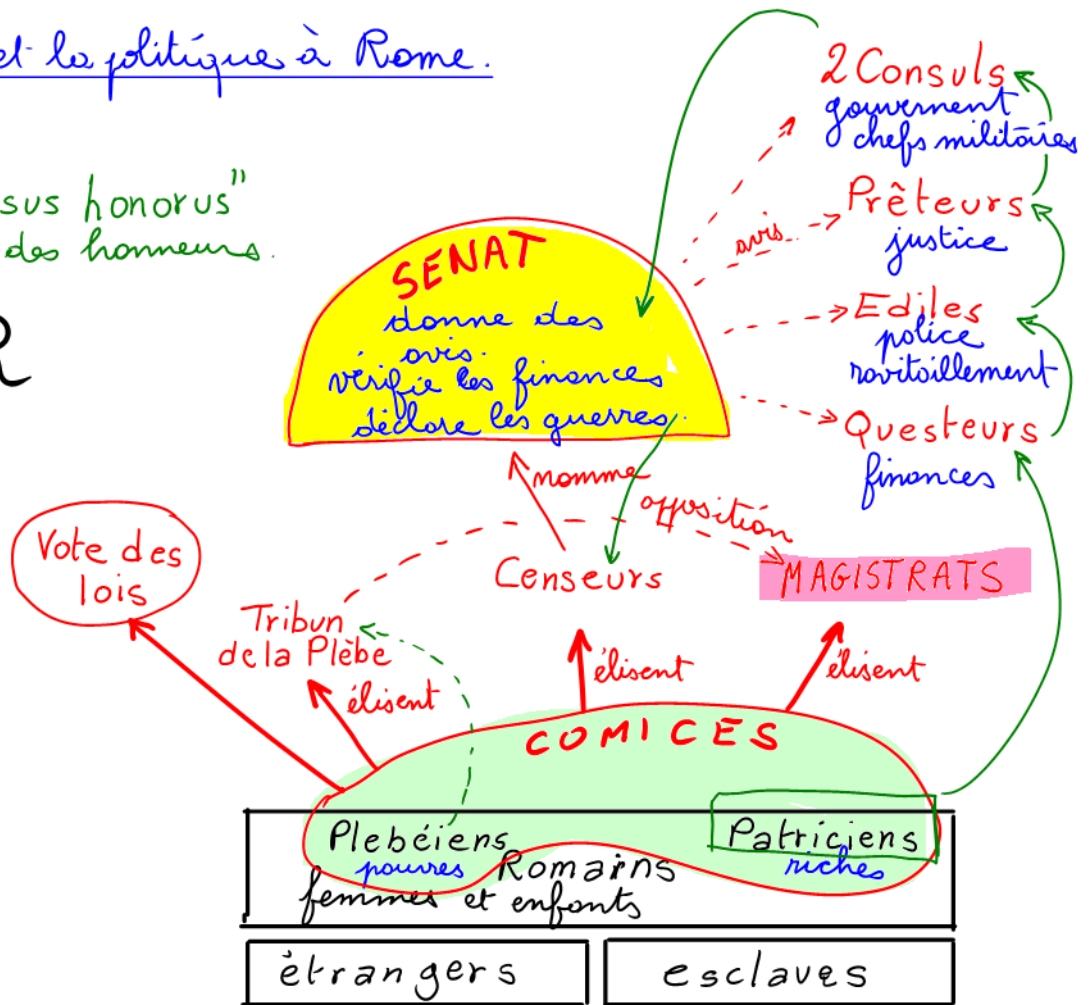 et la politique à Rome.
sus honorus"
des honneurs.
R
2 Consuls
gouvernent
chefs militaires
Prêteurs
justice
avis
Ediles
police
ravitaillement
Questeurs
finances
SENAT
donne des
avis.
vérifie les finances
déclare les guerres.
nomme
opposition
Vote des
lois
Censeurs
MAGISTRATS
Tribun
de la Plèbe
élisent
élisent
élisent
COMICES
Plebéiens
pauvres
Patriciens
riches
Romains
femmes et enfants
étrangers
esclaves